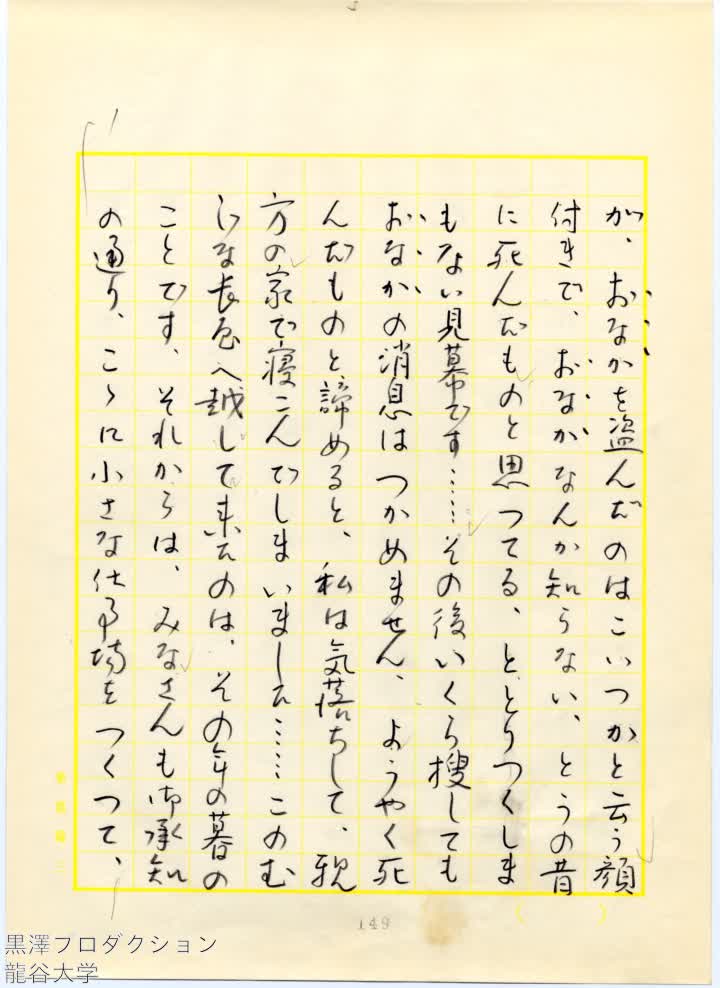 が、おなかを盗んだのはこいつかと云う顔
付きで、おなかなんか知らない、とうの昔
に死んだものと思つてる、ととりつくしま
もない見幕です……その後いくら捜しても
おなかの消息はつかめません、ようやく死
んだものと諦めると、私は気落ちして、親
方の家で寝こんでしまいました……このむ
じな長屋へ越して来たのは、その年の暮の
ことです、それからは、みなさんも御承知
の通り、こゝに小さな仕事場をつくつて、
149
黒澤プロダクション
龍谷大学